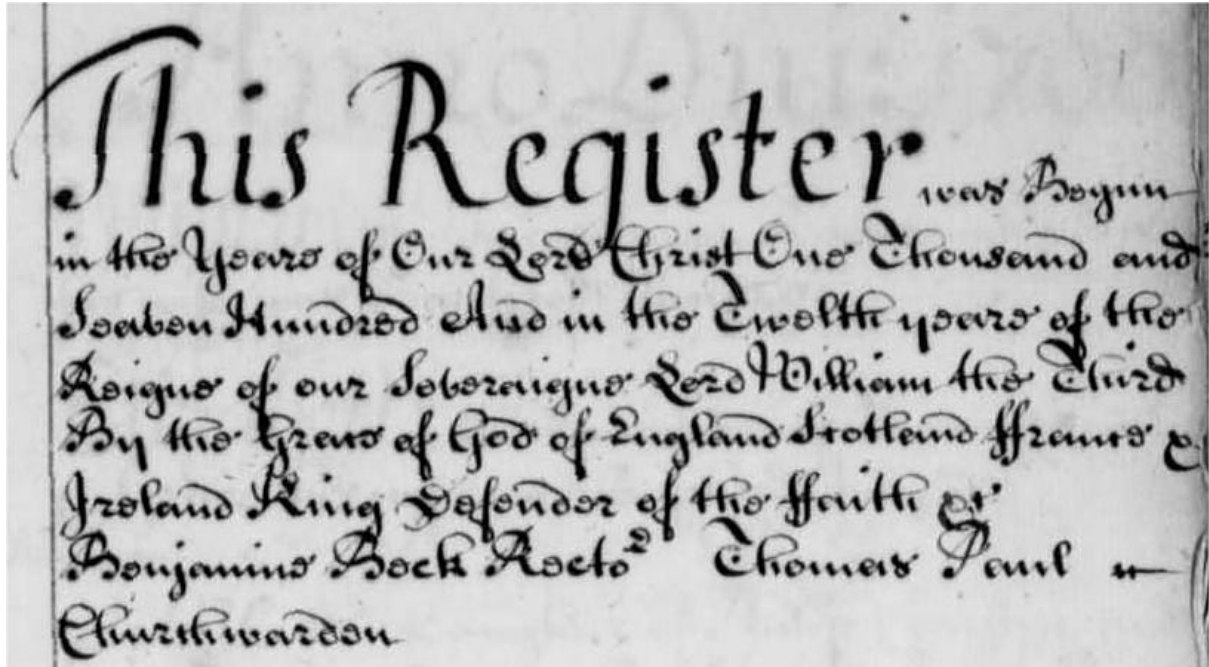 This Register was Begun
in the Yeare of Our Lord Christ One Thousand and
Seaven Hundred And in the Twelth yeare of the
Reigne of our Soveraigne Lord William the Third
By the Grace of God of England Scotland ffrance &
Ireland King Defender of the ffaith &c
Benjamine Beck Rector Thomas Paul
Churchwarden